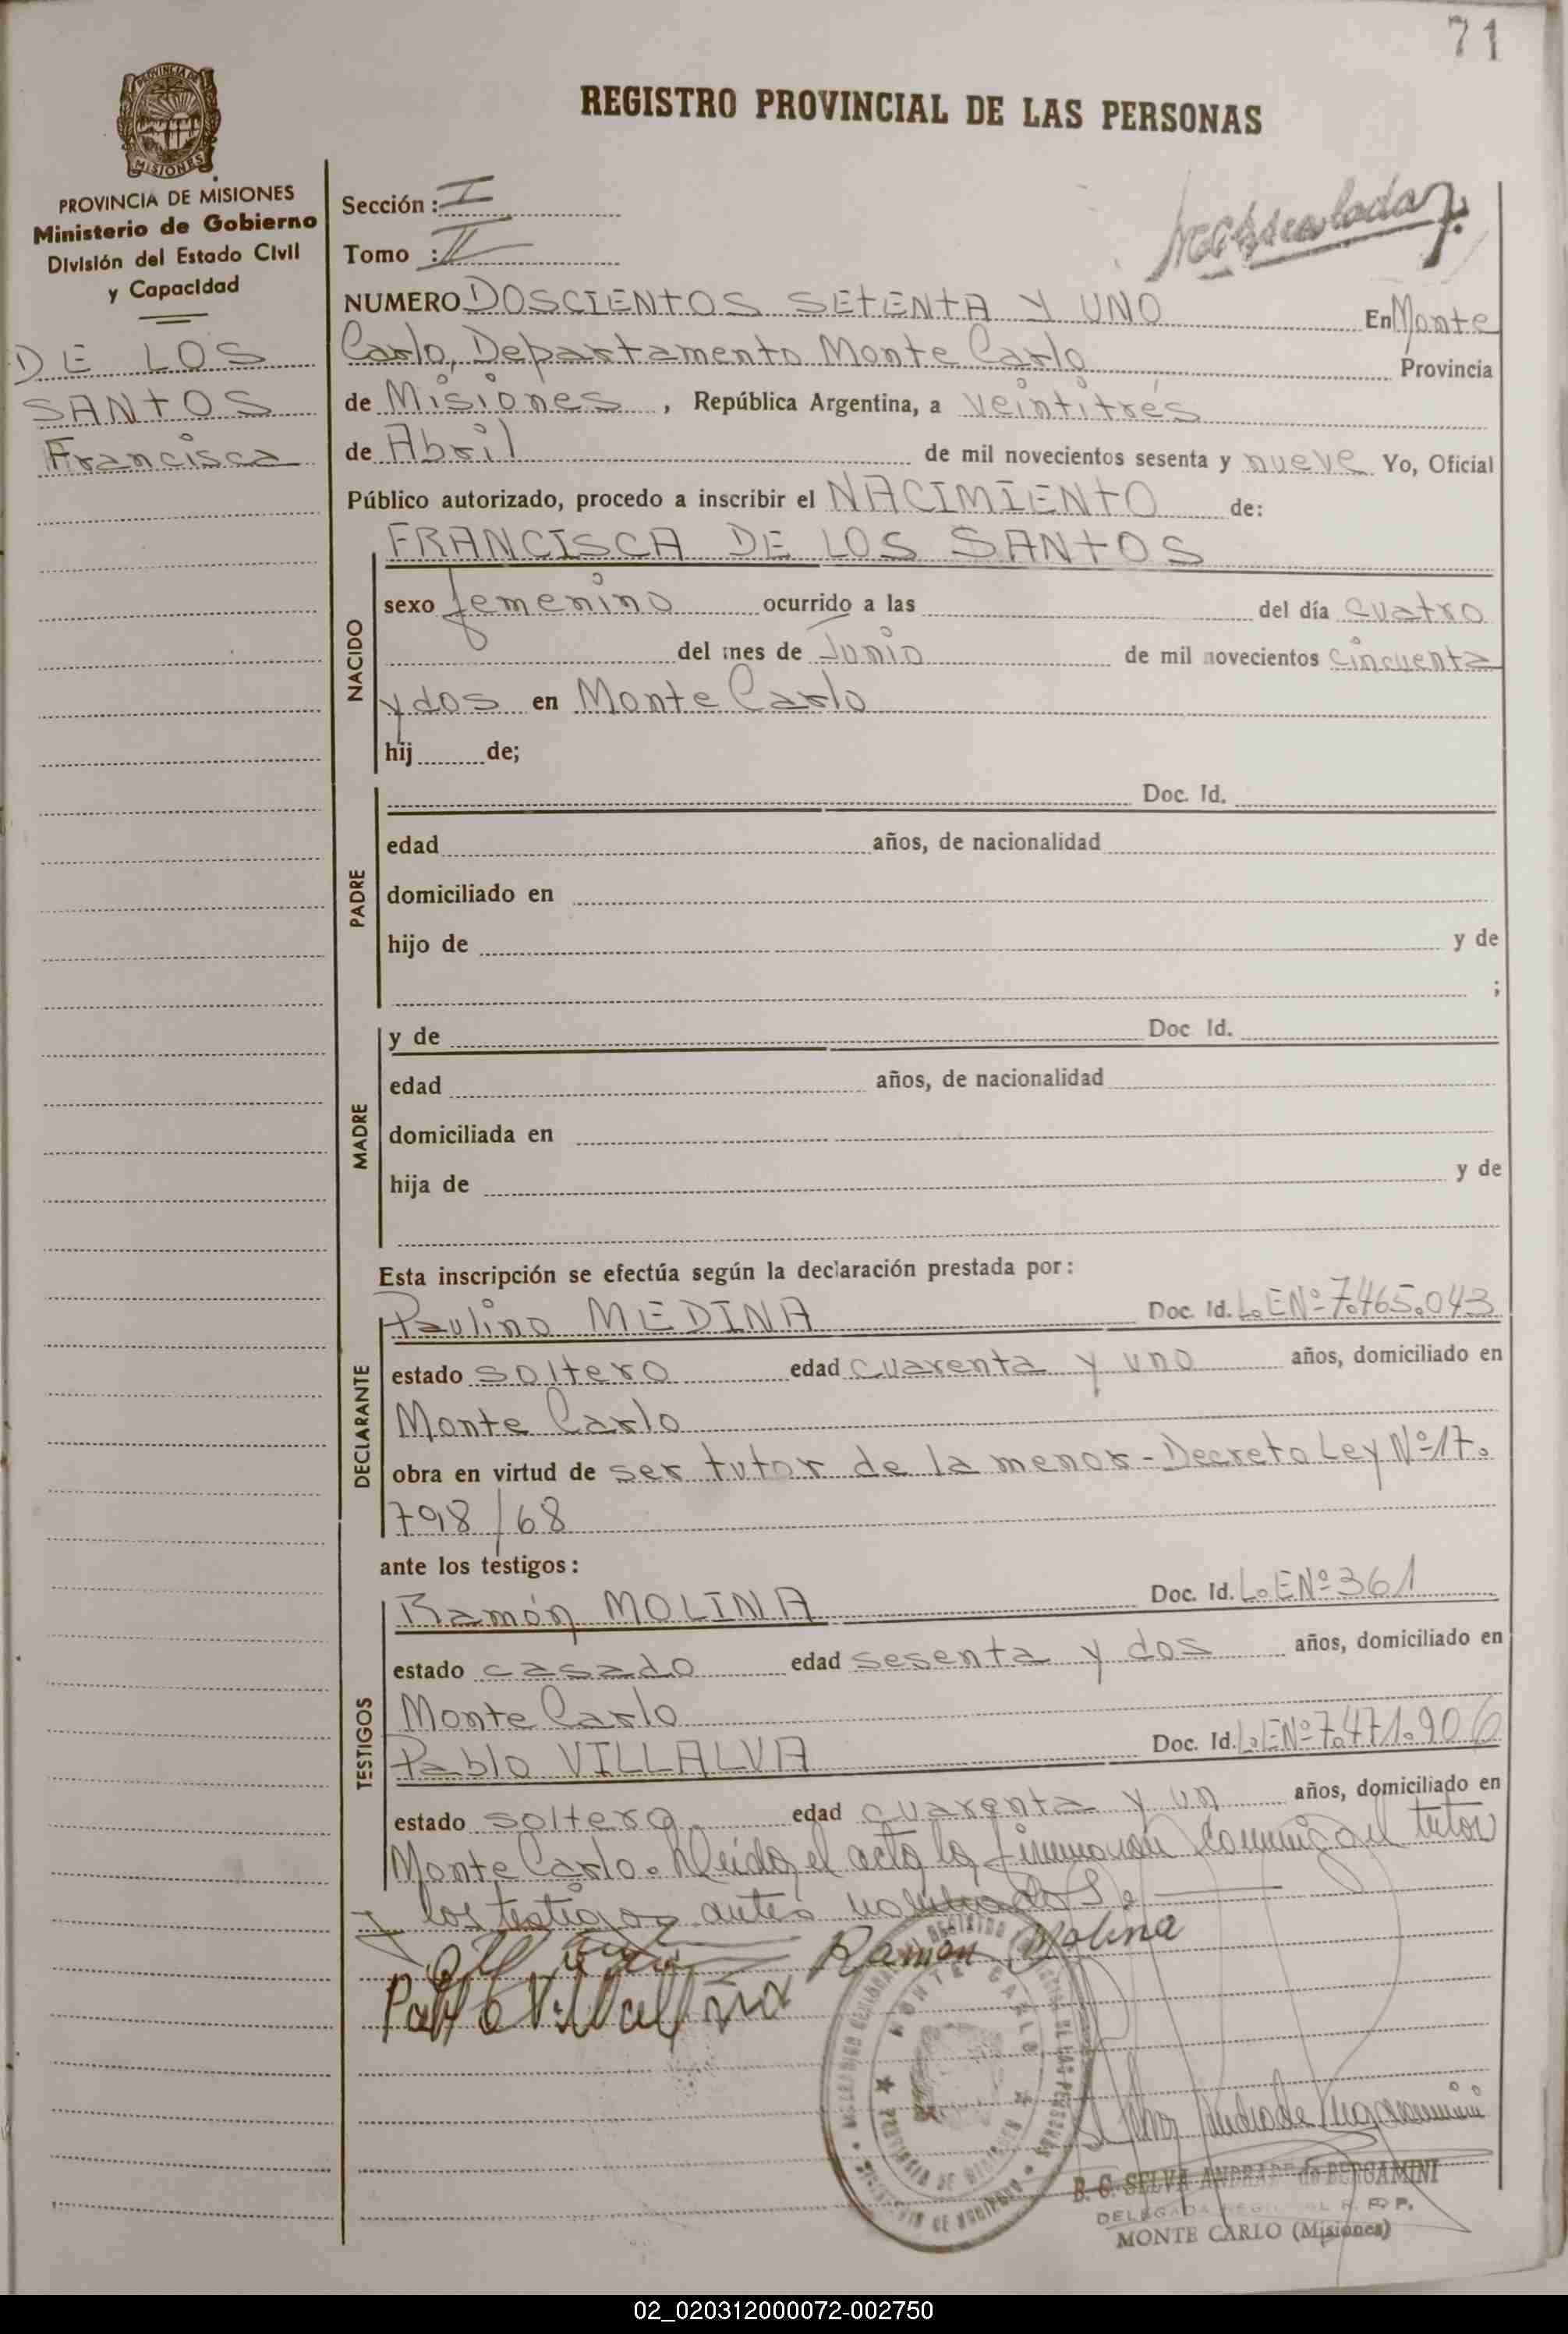 71
PROVINCIA DE MISIONES
REGISTRO PROVINCIAL DE LAS PERSONAS
PROVINCIA DE MISIONES
Ministerio de Gobierno
División del Estado Civil
y Capacidad
DE LOS
SANTOS
Francisca
Sección : I
Tomo : II
NUMERO DOSCIENTOS SETENTA Y UNO En Monte
Carlo, Departamento Monte Carlo Provincia
de Misiones, República Argentina, a veintitrés
de Abril de mil novecientos sesenta y nueve Yo, Oficial
Público autorizado, procedo a inscribir el NACIMIENTO de:
NACIDO
FRANCISCA DE LOS SANTOS
sexo femenino ocurrido a las del día cuatro
del mes de Junio de mil novecientos cincuenta
y dos en Monte Carlo
hij de;
PADRE
Doc. Id.
edad años, de nacionalidad
domiciliado en
hijo de y de
;
MADRE
y de Doc Id.
edad años, de nacionalidad
domiciliada en
hija de y de
Esta inscripción se efectúa según la declaración prestada por:
DECLARANTE
Paulino MEDINA Doc. Id. L.E Nº 7.465.043
estado soltero edad cuarenta y uno años, domiciliado en
Monte Carlo
obra en virtud de ser tutor de la menor - Decreto Ley Nº 17.
798/68
ante los testigos:
TESTIGOS
Ramón MOLINA Doc. Id. L.E Nº 361
estado casado edad sesenta y dos años, domiciliado en
Monte Carlo
Pablo VILLALVA Doc. Id. L.E Nº 7.471.906
estado soltero edad cuarenta y un años, domiciliado en
Monte Carlo. Leida el acta la firmaron conmigo el tutor
y los testigos antes nombrados.
Ramon Molina
Pablo Villalva
MONTE CARLO
PROVINCIA DE MISIONES
MINISTERIO DE GOBIERNO
B. C. SELVA ANDRADE de BERGAMINI
DELEGADA R. P. P.
MONTE CARLO (Misiones)
02_020312000072-002750